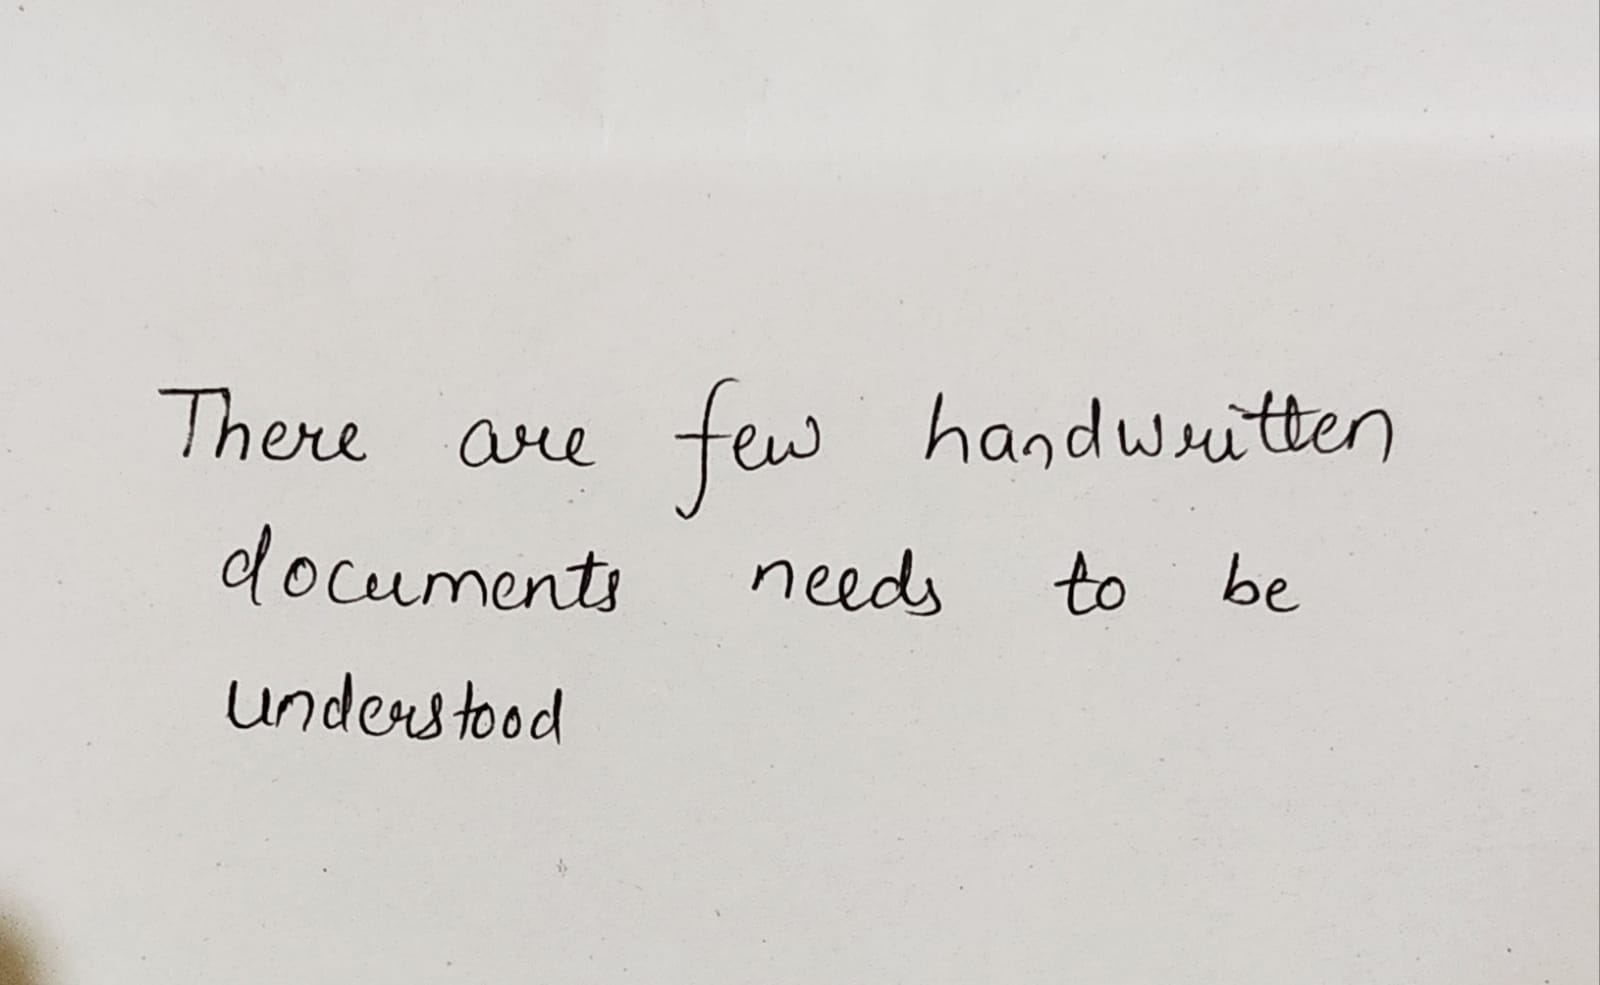 There are few handwritten
documents needs to be
understood